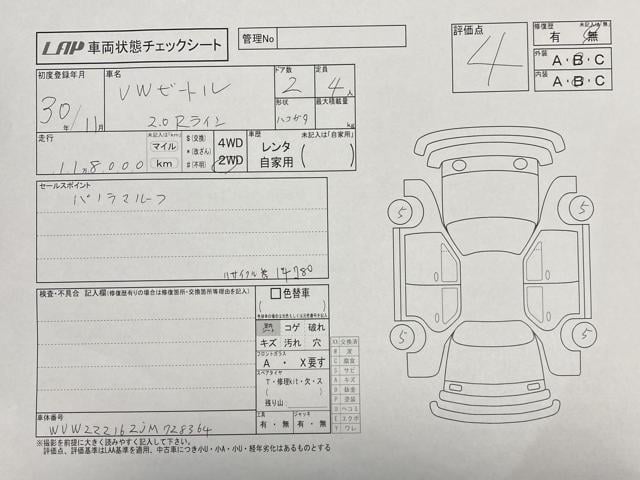 LAP 車両状態チェックシート
管理No
評価点
4
修復歴
未記入は「無」
有 ・ 無
外装
A・B・C
内装
A・B・C
初度登録年月
30年/11月
車名
VWビートル
2.0 Rライン
ドア数
2
定員
4人
形状
ハコガタ
最大積載量
kg
走行
11万8,000
未記入は「km」
マイル
km
$(交換)
*(改ざん)
#(不明)
4WD
2WD
車歴
未記入は「自家用」
レンタ
自家用
セールスポイント
パノラマルーフ
リサイクル券 14780
検査・不具合 記入欄(修復歴有りの場合は修復箇所・交換箇所等理由を記入)
色替車
室内
コゲ 破れ
キズ 汚れ 穴
フロントガラス
A ・ X要す
スペアタイヤ
T・修理kit・欠・ス
残り山:
工具
有・無
ジャッキ
有・無
XX 交換済
W 波
C 腐食
S サビ
A キズ
B 鈑金
P 塗装
D ヘコミ
E エクボ
Y ワレ
5
5
5
5
車体番号
WVWZZZ16ZJM728364
※撮影を前提に大きく読みやすく記入して下さい。
評価点、評価基準はLAA基準を適用、中古車につき小U・小A・小U・経年劣化はあるものとする